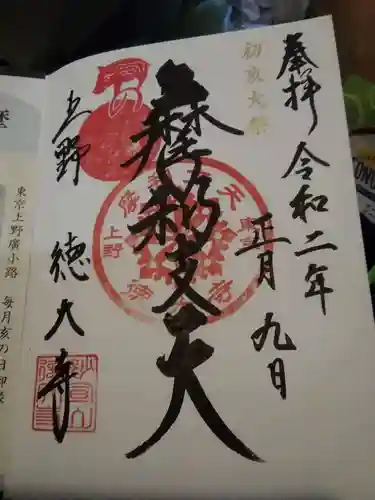 奉拝
令和二年
正月九日
初亥大祭
摩利支天
上野
徳大寺
上野
東京上野廣小路 毎月亥の日御縁